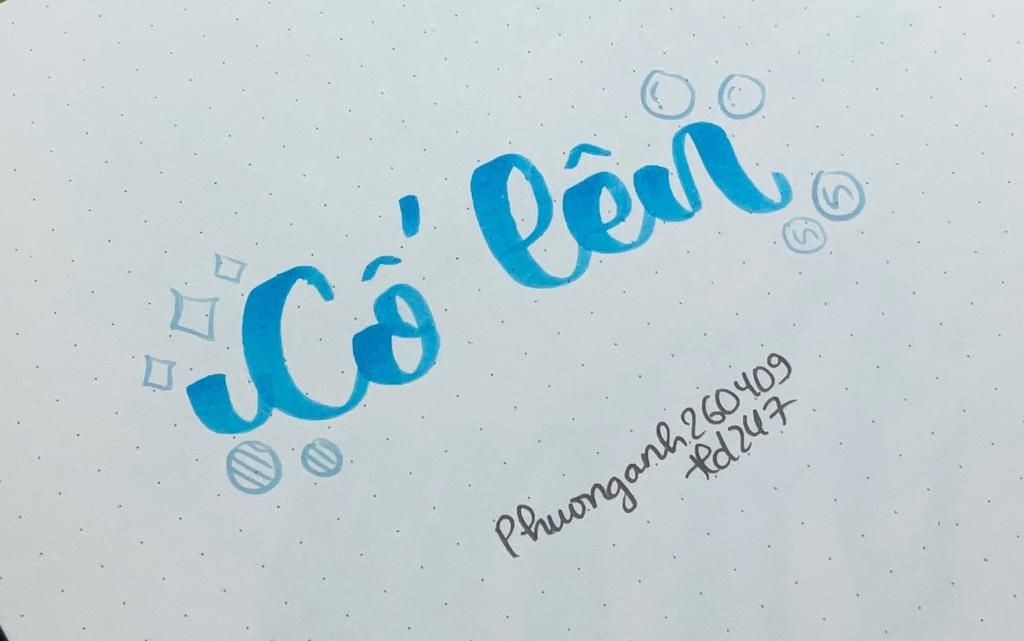 Cố lên
Phuonganh260409
tld247